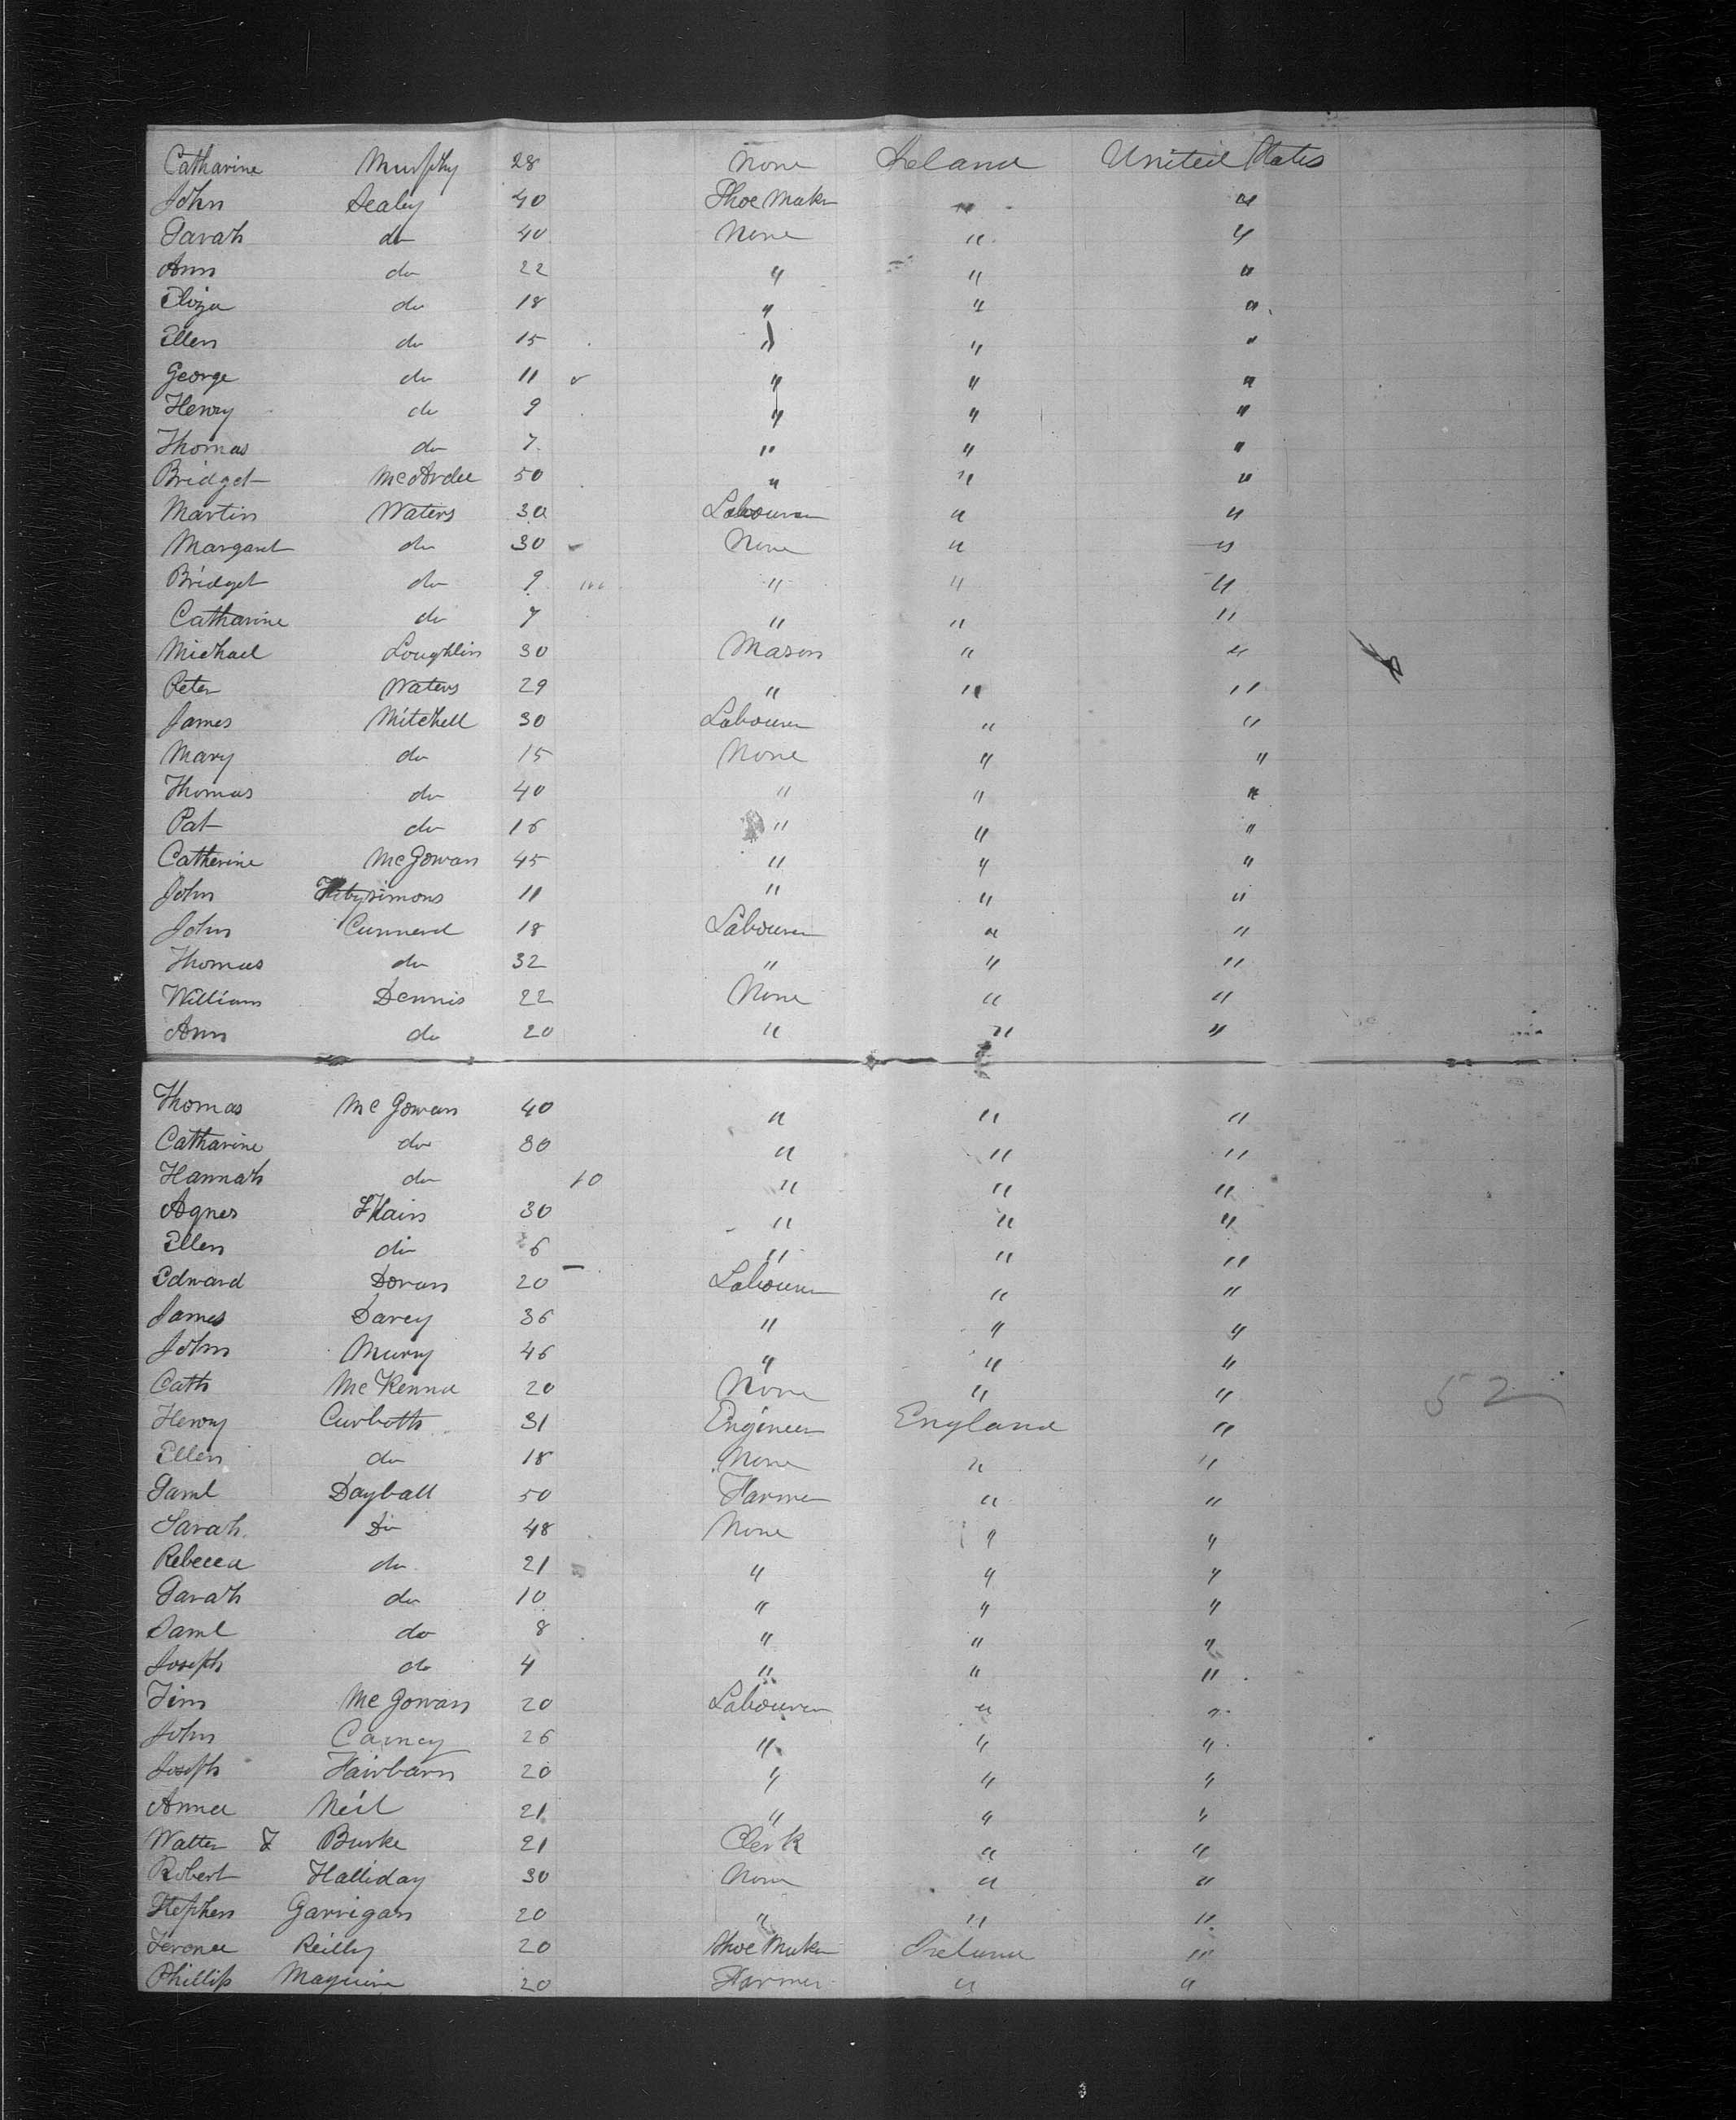 Catharine Murphy 28 None Ireland United States
John Sealey 40 Shoe Maker " "
Sarah do 40 None " "
Ann do 22 " " "
Eliza do 18 " " "
Ellen do 15 " " "
George do 11 " " "
Henry do 9 " " "
Thomas do 7 " " "
Bridget McArdee 50 " " "
Martin Waters 30 Labourer " "
Margaret do 30 None " "
Bridget do 9 " " "
Catharine do 7 " " "
Michael Loughlin 30 Mason " "
Peter Waters 29 " " "
James Mitchell 30 Labourer " "
Mary do 15 None " "
Thomas do 40 " " "
Pat do 16 " " "
Catherine McGowan 45 " " "
John Fitzsimons 11 " " "
John Cunnard 18 Labourer " "
Thomas do 32 " " "
William Dennis 22 None " "
Ann do 20 " " "
Thomas McGowan 40 " " "
Catharine do 30 " " "
Hannah do 10 " " "
Agnes 30 " " "
Ellen do 6 " " "
Edward Doran 20 Labourer " "
James Darcy 36 " " "
John Murry 46 " " "
Cath McKenna 20 None " " 52
Henry Curboth 31 Engineer England "
Ellen do 18 None " "
Saml Dayball 50 Farmer " "
Sarah Do 48 None " "
Rebecca do 21 " " "
Sarah do 10 " " "
Saml do 8 " " "
Joseph do 4 " " "
Tim McGowan 20 Labourer " "
John Carney 26 " " "
Joseph Fairbarn 20 " " "
Anna Neil 21 " " "
Walter F Burke 21 Clerk " "
Robert Halliday 30 None " "
Stephen Garrigan 20 " " "
Terence Reilly 20 Shoe Maker Ireland "
Phillip Maguire 20 Farmer " "